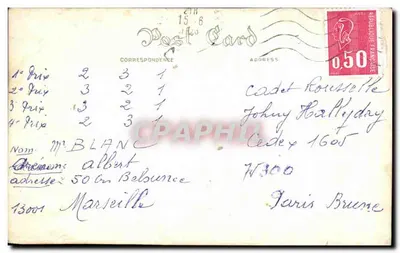 15-8
REPUBLIQUE FRANCAISE
0,50
Post Card
CORRESPONDENCE
ADDRESS
1° Prix 2 3 1
2° Prix 3 2 1
3 Prix 3 2 1
4° Prix 2 3 1
Nom Mr BLANC
albert
adresse = 50 Crs Belsunce
13001 Marseille
Cadet Rousselle
Johny Hallyday
Cedex 1605
W300
Paris Brune
CPARAMA